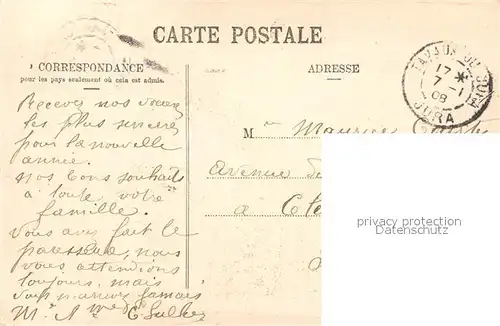 CARTE POSTALE
CORRESPONDANCE
pour les pays seulement où cela est admis.
ADRESSE
TAVAUX JURA
17 *
7 - 1
08
JURA
Recevez nos voeux
les plus sincères
pour la nouvelle
année.
Nos bons souhaits
à toute votre
famille.
Vous avez fait le
paresseux, nous
vous attendions
toujours, mais
vous n'arrivez jamais
Mr Maurice
Avenue de
à
privacy protection
Datenschutz